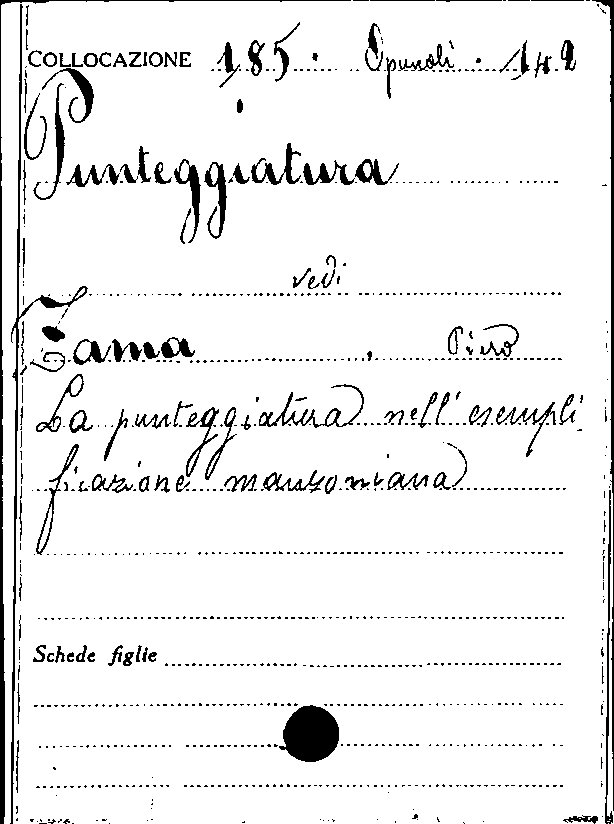 COLLOCAZIONE 185. Opuscoli. 142
Punteggiatura
vedi
Zama, Piero
La punteggiatura nell'esempli-
ficazione manzoniana
Schede figlie